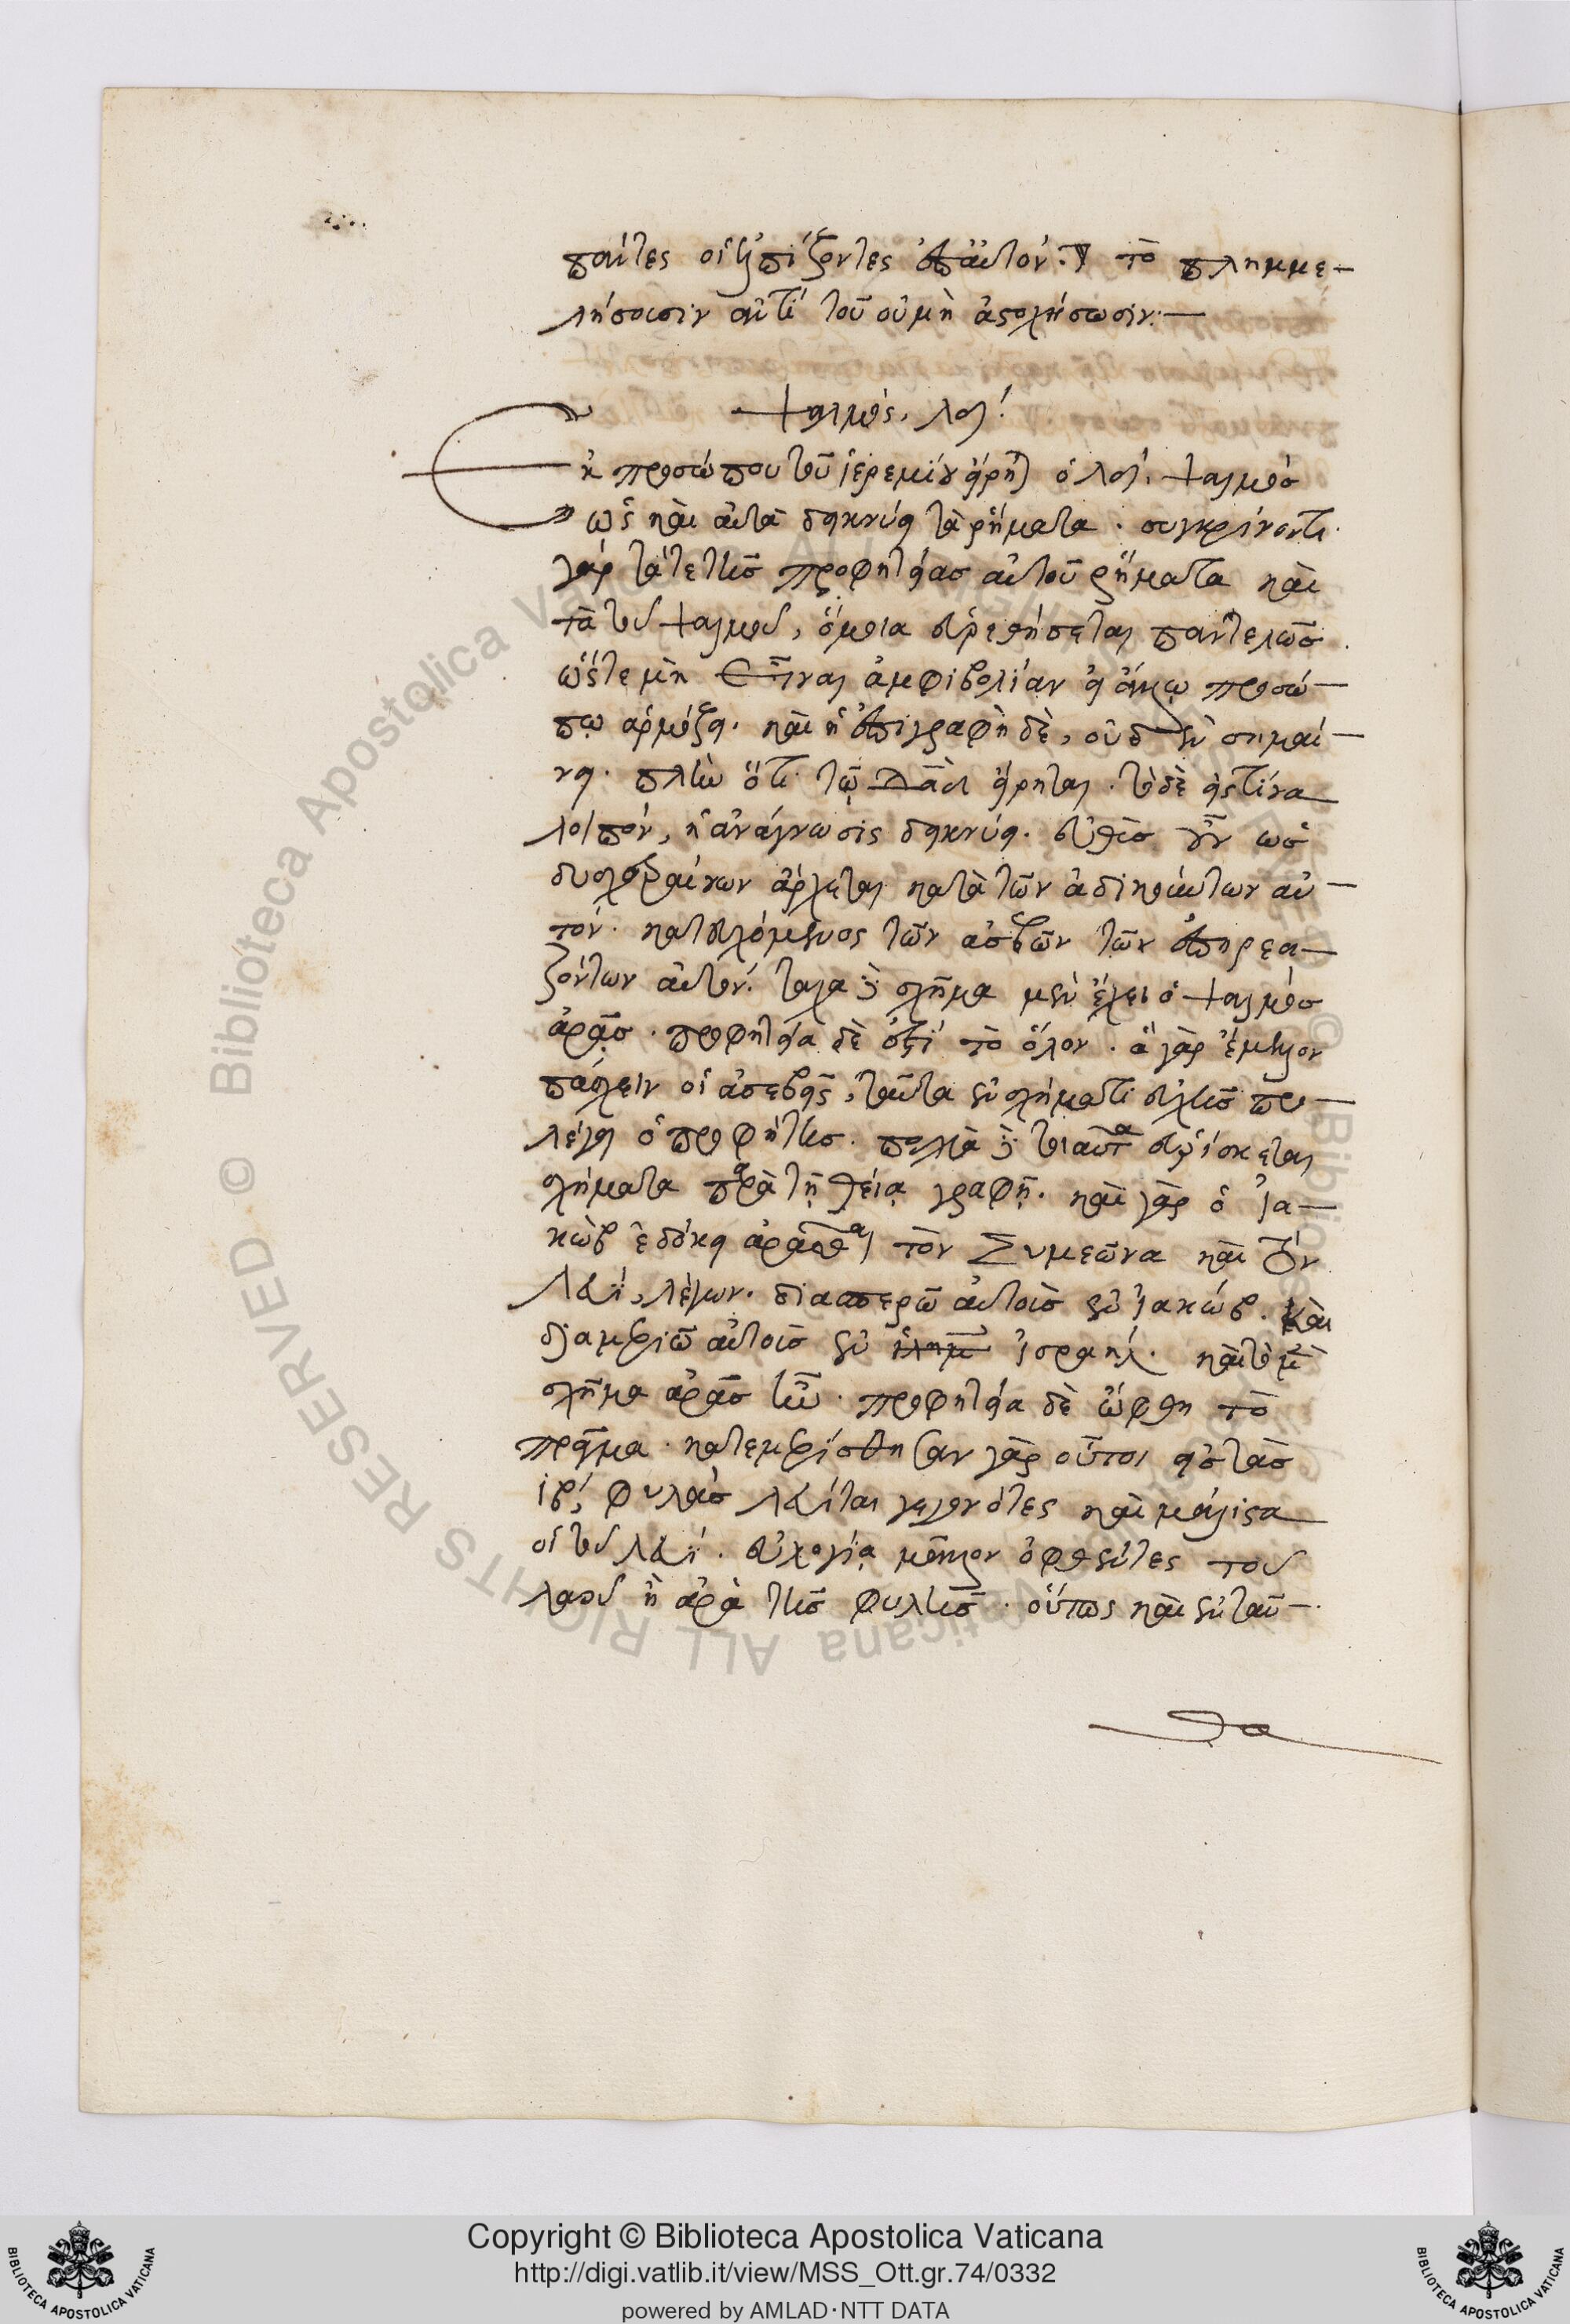 πάντες οἱ ἐλπίζοντες ἐπ' αὐτόν: τὸ πλημμε-
λήσουσιν ἀντὶ τοῦ οὐ μὴ ἀστοχήσωσιν:—
ψαλμὸς, λδ!
Ἐκ προσώπου τοῦ ἱερεμίου εἴρηται ὁ λδ. ψαλμὸσ
ὡς καὶ αὐτὰ δεικνύει τὰ ῥήματα. συγκρίνοντι
γὰρ τά τε τῆσ προφητείασ αὐτοῦ ῥήματα καὶ
τὰ τοῦ ψαλμοῦ, ὅμοια εὑρεθήσεται παντελῶσ.
ὥστε μὴ εἶναι ἀμφιβολίαν εἰ ἄλλῳ προσώ-
πῳ ἁρμόζει. καὶ ἡ ἐπιγραφὴ δὲ, οὐδὲν σημαί-
νει. πλὴν ὅτι τῷ δᾱδ εἴρηται. τὸ δὲ εἰς τίνα
λοιπόν, ἡ ἀνάγνωσις δεικνύει. εὐθὺσ οὖν ὡσ
δυσχεραίνων ἄρχεται κατὰ τῶν ἀδικούντων αὐ-
τόν. κατευχόμενος τῶν ἀσεβῶν τῶν ἐπηρεα-
ζόντων αὐτόν. σχῆμα μὲν ἔχει ὁ ψαλμὸσ
ἀρᾶσ. προφητεία δὲ ἐστὶ τὸ ὅλον. ἃ γὰρ ἔμελλον
πάσχειν οἱ ἀσεβεῖς, ταῦτα ἐν σχήματι εὐχῆσ προ-
λέγει ὁ προφήτησ. πολλὰ δὲ τοιαῦτα εὑρίσκεται
σχήματα παρὰ τῇ θείᾳ γραφῇ. καὶ γὰρ ὁ ἰα-
κὼβ ἐδόκει ἀρᾶσθαι τὸν Συμεῶνα καὶ τὸν
λευὶ, λέγων. διασπερῶ αὐτοὺσ ἐν ἰακώβ. καὶ
διαμεριῶ αὐτοὺσ ἐν ἰσραήλ. καὶ τὸ μὲν
σχῆμα ἀρᾶσ ἦν. προφητεία δὲ ὤφθη τὸ
πρᾶγμα. κατεμερίσθησαν γὰρ οὗτοι εἰσ τὰσ
ιβ, φυλὰσ λευῖται γεγονότες καὶ μάλιστα
οἱ τοῦ λευί. εὐλογίᾳ μᾶλλον ὀφθέντες τοῦ
λαοῦ ἢ ἀρὰ τῆσ φυλῆσ. οὕτως καὶ ἐνταῦ-
θα
Copyright © Biblioteca Apostolica Vaticana
http://digi.vatlib.it/view/MSS_Ott.gr.74/0332
powered by AMLAD·NTT DATA
BIBLIOTECA APOSTOLICA VATICANA
BIBLIOTECA APOSTOLICA VATICANA